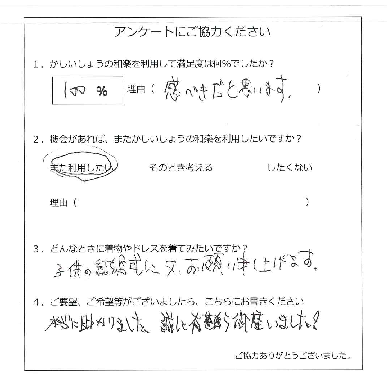 アンケートにご協力ください
1. かしいしょうの和楽を利用して満足度は何%でしたか?
100 % 理由 ( 感べきだと思います。 )
2. 機会があれば、またかしいしょうの和楽を利用したいですか?
また利用したい そのとき考える したくない
理由 ( )
3. どんなときに着物やドレスを着てみたいですか?
子供の結婚式に、又、お願い申し上げます。
4. ご要望、ご希望等がございましたら、こちらにお書きください
本当に助かりました、誠に有難う御座いました。
ご協力ありがとうございました。